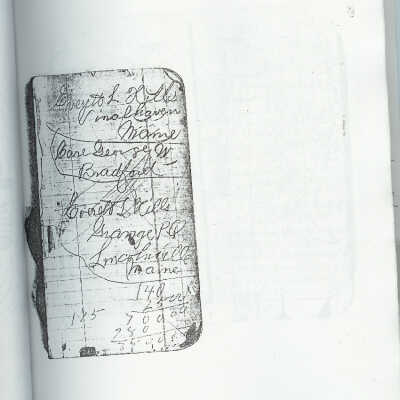 Everett L Hills
Vinalhaven
Maine
Care George W
Bradford
Everett L Hills
Grange P.O
Lincolnville
Maine
140
145 700
280